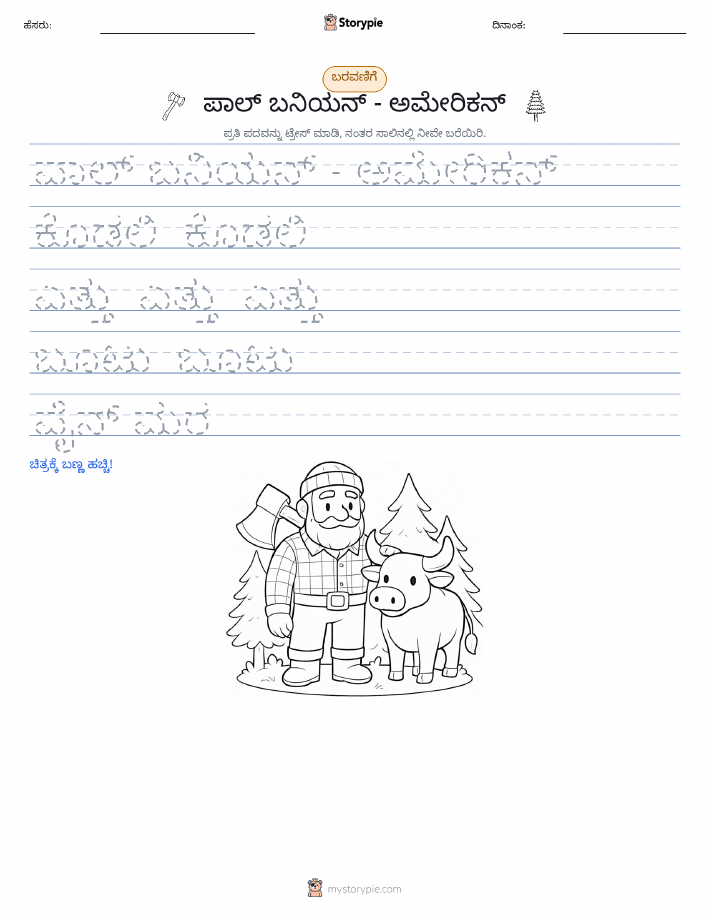 ಹೆಸರು:
Storypie
ದಿನಾಂಕ:
ಬರವಣಿಗೆ
ಪಾಲ್ ಬನಿಯನ್ - ಅಮೇರಿಕನ್
ಪ್ರತಿ ಪದವನ್ನು ಟ್ರೇಸ್ ಮಾಡಿ, ನಂತರ ಸಾಲಿನಲ್ಲಿ ನೀವೇ ಬರೆಯಿರಿ.
ಪಾಲ್ ಬನಿಯನ್ - ಅಮೇರಿಕನ್
ಕೊಡಲಿ ಕೊಡಲಿ
ಎತ್ತು ಎತ್ತು ಎತ್ತು
ಪೈನ್ ಮರ
ಚಿತ್ರಕ್ಕೆ ಬಣ್ಣ ಹಚ್ಚಿ!
mystorypie.com